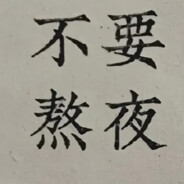 不要
熬夜